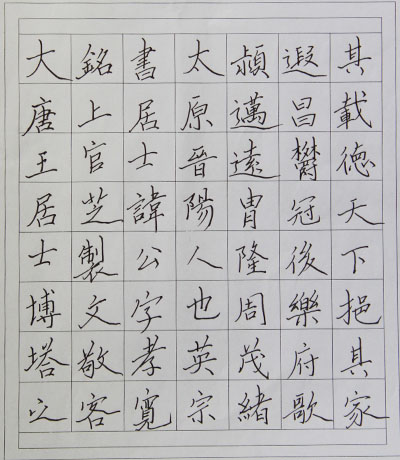 大唐王居士博塔之
銘上官芝製文敬客
書居士諱公字孝寬
太原晉陽人也英宗
穎邁遠胄隆周茂緒
遐昌欝冠後樂府歌
其載德天下挹其家